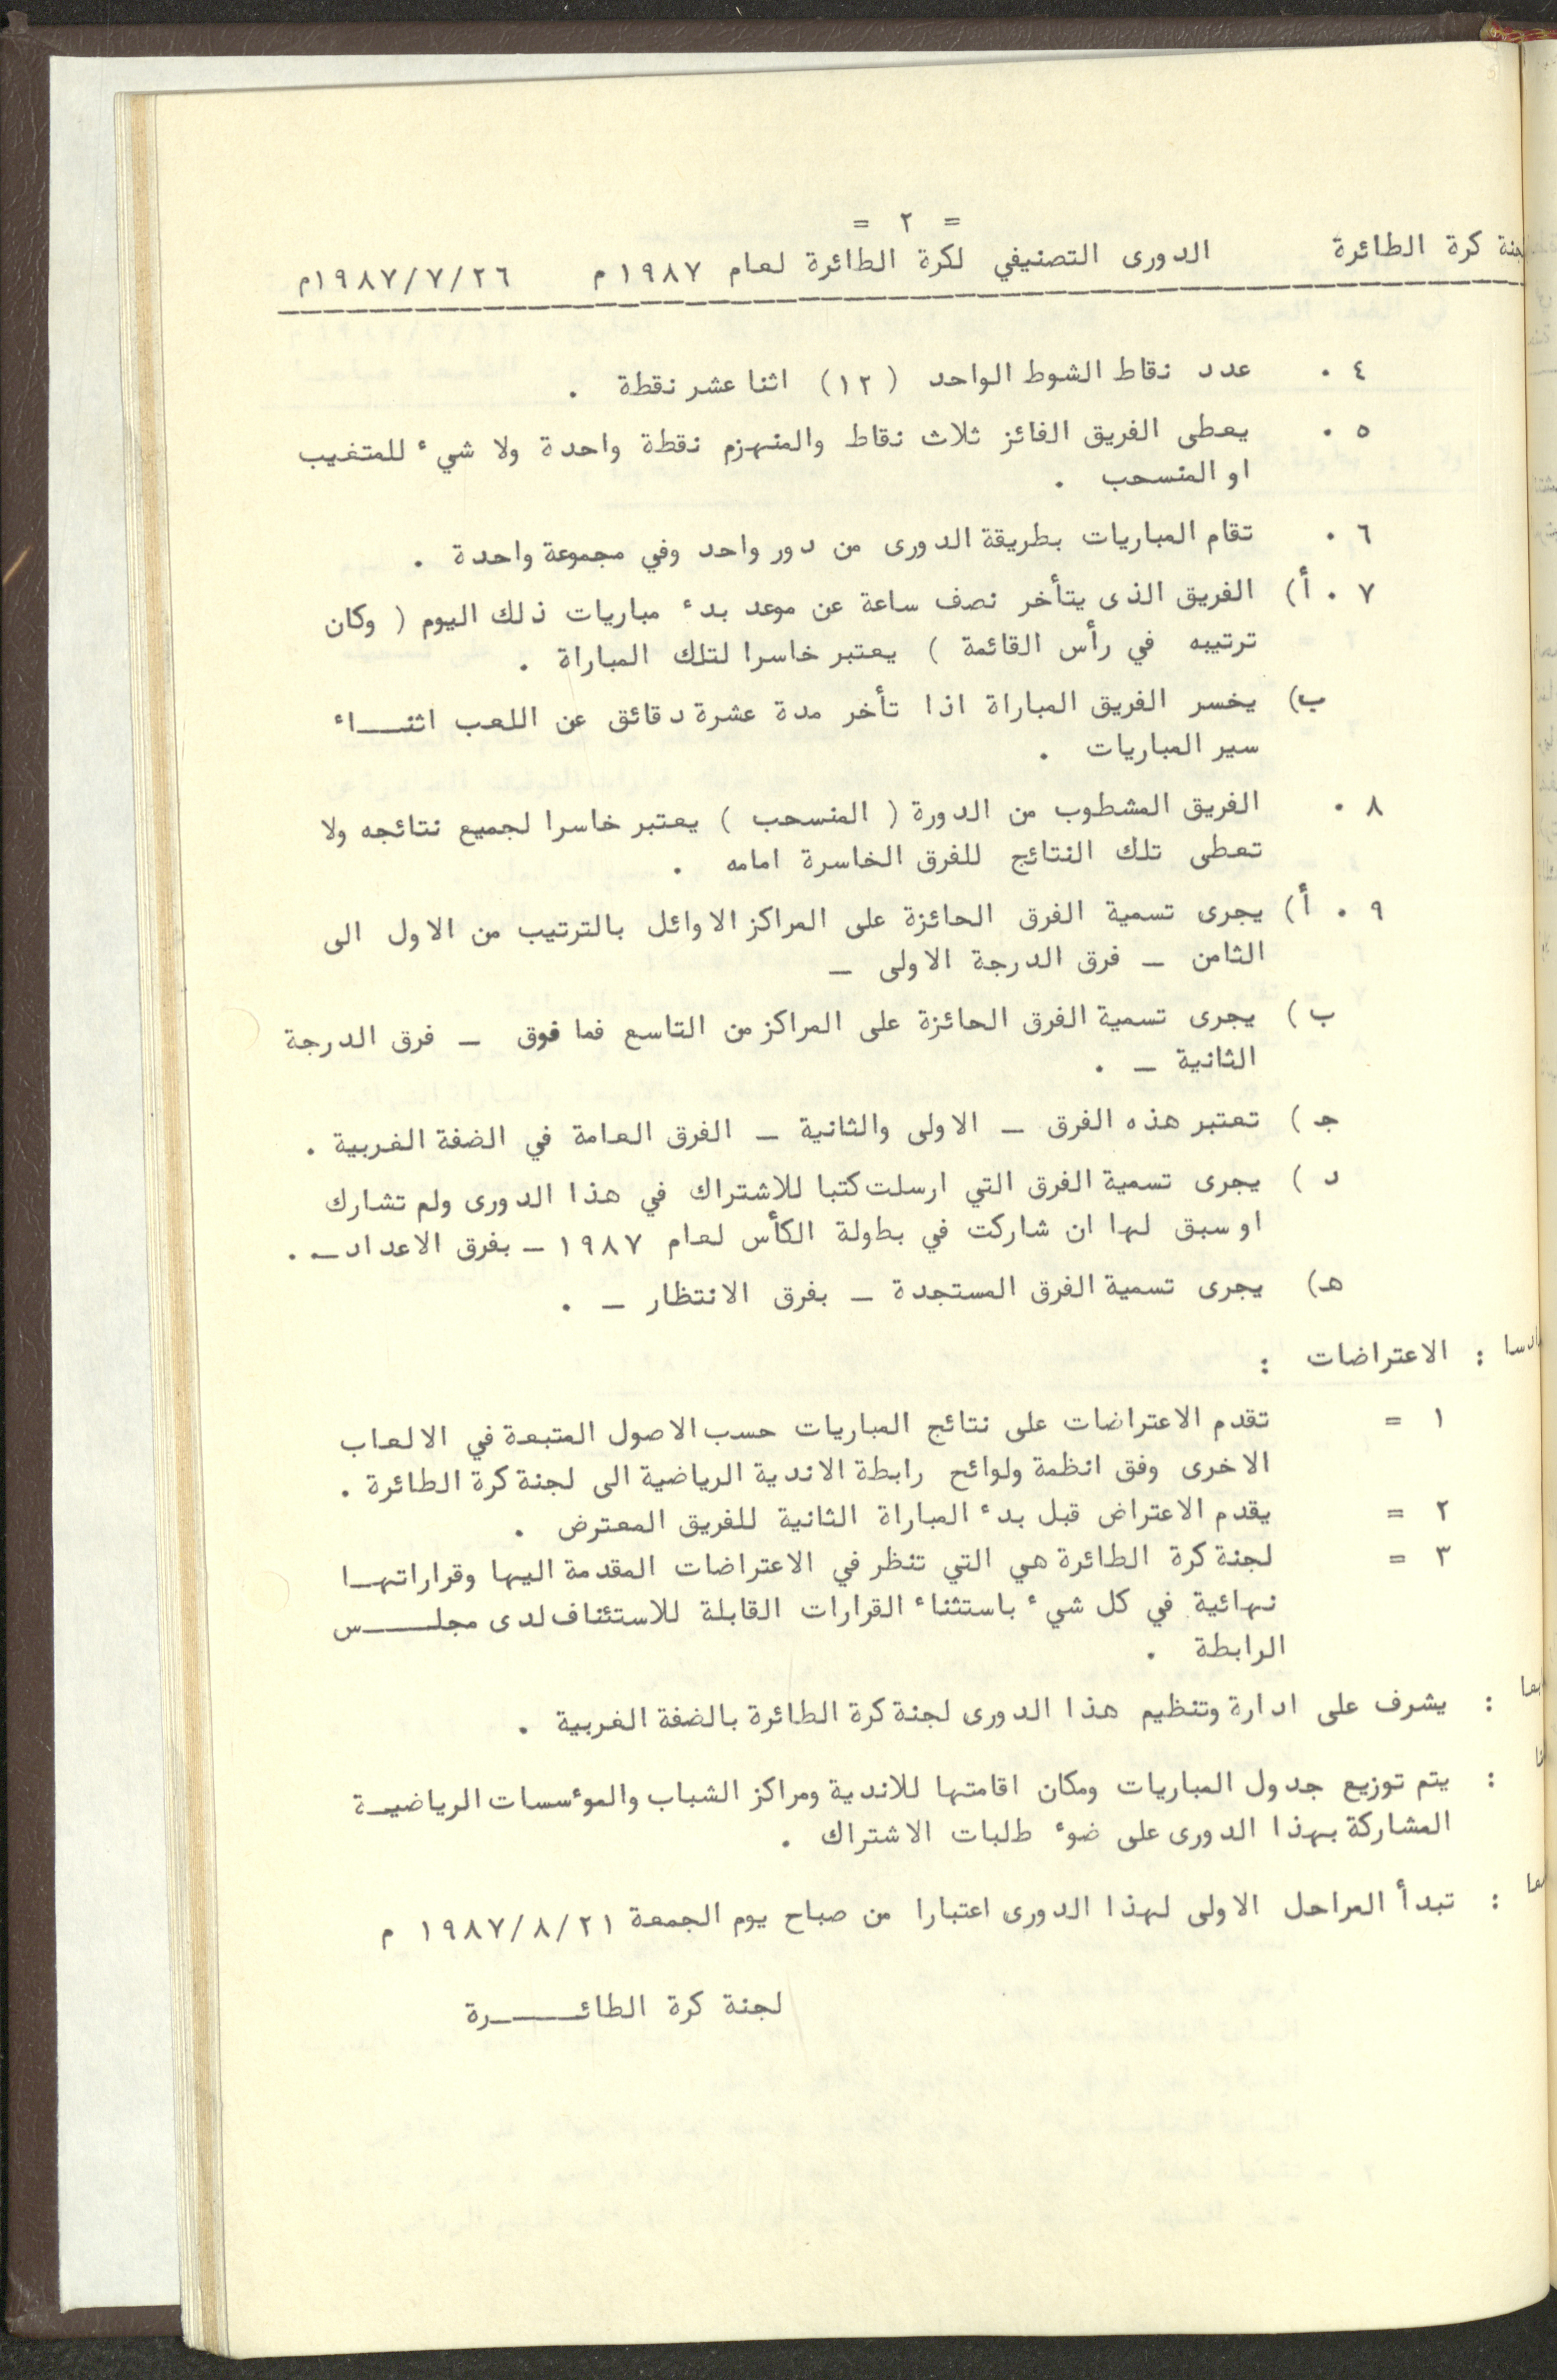 = ٢ =
لجنة كرة الطائرة الدورى التصنيفي لكرة الطائرة لعام ١٩٨٧ م ١٩٨٧/٧/٢٦م
٤ . عدد نقاط الشوط الواحد (١٢) اثنا عشر نقطة .
٥ . يعطى الفريق الفائز ثلاث نقاط والمنهزم نقطة واحدة ولا شيء للمتغيب
او المنسحب .
٦ . تقام المباريات بطريقة الدورى من دور واحد وفي مجموعة واحدة .
٧ . أ) الفريق الذى يتأخر نصف ساعة عن موعد بدء مباريات ذلك اليوم ( وكان
ترتيبه في رأس القائمة ) يعتبر خاسرا لتلك المباراة .
ب) يخسر الفريق المباراة اذا تأخر مدة عشرة دقائق عن اللعب اثنـــاء
سير المباريات .
٨ . الفريق المشطوب من الدورة ( المنسحب ) يعتبر خاسرا لجميع نتائجه ولا
تعطى تلك النتائج للفرق الخاسرة امامه .
٩ . أ) يجرى تسمية الفرق الحائزة على المراكز الاوائل بالترتيب من الاول الى
الثامن ــ فرق الدرجة الاولى ــ
ب ) يجرى تسمية الفرق الحائزة على المراكز من التاسع فما فوق ــ فرق الدرجة
الثانية ــ .
جـ ) تعتبر هذه الفرق ــ الاولى والثانية ــ الفرق العامة في الضفة الغربية .
د ) يجرى تسمية الفرق التي ارسلت كتبا للاشتراك في هذا الدورى ولم تشارك
او سبق لها ان شاركت في بطولة الكأس لعام ١٩٨٧ ــ بفرق الاعداد ــ .
هـ) يجرى تسمية الفرق المستجدة ــ بفرق الانتظار ــ .
سادسا : الاعتراضات :
١ = تقدم الاعتراضات على نتائج المباريات حسب الاصول المتبعة في الالعاب
الاخرى وفق انظمة ولوائح رابطة الاندية الرياضية الى لجنة كرة الطائرة .
٢ = يقدم الاعتراض قبل بدء المباراة الثانية للفريق المعترض .
٣ = لجنة كرة الطائرة هي التي تنظر في الاعتراضات المقدمة اليها وقراراتهــا
نهائية في كل شيء باستثناء القرارات القابلة للاستئناف لدى مجلــــس
الرابطة .
: يشرف على ادارة وتنظيم هذا الدورى لجنة كرة الطائرة بالضفة الغربية .
: يتم توزيع جدول المباريات ومكان اقامتها للاندية ومراكز الشباب والموءسسات الرياضيــة
المشاركة بهذا الدورى على ضوء طلبات الاشتراك .
: تبدأ المراحل الاولى لهذا الدورى اعتبارا من صباح يوم الجمعة ١٩٨٧/٨/٢١ م
لجنة كرة الطائــــــرة